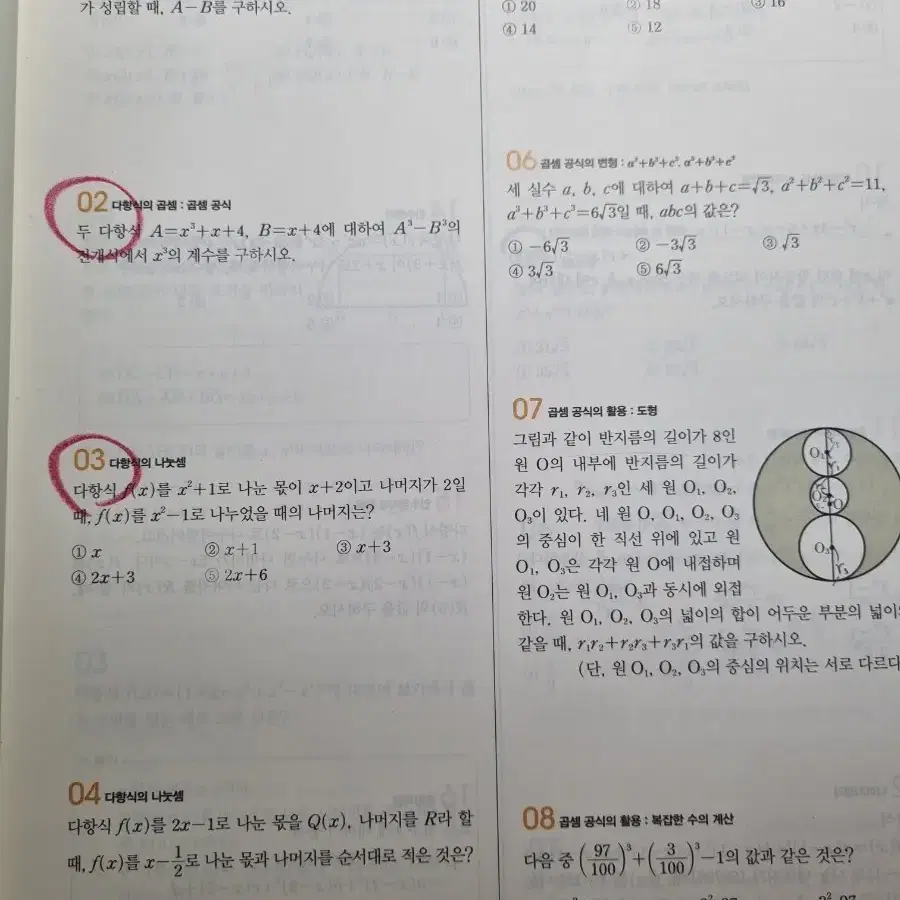 가 성립할 때, A−B를 구하시오.
02 다항식의 곱셈 : 곱셈 공식
두 다항식 A=x³+x+4, B=x+4에 대하여 A³−B³의
전개식에서 x³의 계수를 구하시오.
03 다항식의 나눗셈
다항식 f(x)를 x²+1로 나눈 몫이 x+2이고 나머지가 2일
때, f(x)를 x²−1로 나누었을 때의 나머지는?
① x ② x+1 ③ x+3
④ 2x+3 ⑤ 2x+6
04 다항식의 나눗셈
다항식 f(x)를 2x−1로 나눈 몫을 Q(x), 나머지를 R라 할
때, f(x)를 x−1/2로 나눈 몫과 나머지를 순서대로 적은 것은?
① 20 ② 18 ③ 16
④ 14 ⑤ 12
06 곱셈 공식의 변형 : a²+b²+c², a³+b³+c³
세 실수 a, b, c에 대하여 a+b+c=√3, a²+b²+c²=11,
a³+b³+c³=6√3일 때, abc의 값은?
① −6√3 ② −3√3 ③ √3
④ 3√3 ⑤ 6√3
07 곱셈 공식의 활용 : 도형
그림과 같이 반지름의 길이가 8인
원 O의 내부에 반지름의 길이가
각각 r₁, r₂, r₃인 세 원 O₁, O₂,
O₃이 있다. 네 원 O, O₁, O₂, O₃
의 중심이 한 직선 위에 있고 원
O₁, O₃은 각각 원 O에 내접하며
원 O₂는 원 O₁, O₃과 동시에 외접
한다. 원 O₁, O₂, O₃의 넓이의 합이 어두운 부분의 넓이
같을 때, r₁r₂+r₂r₃+r₃r₁의 값을 구하시오.
(단, 원 O₁, O₂, O₃의 중심의 위치는 서로 다르다
O₁
r₁
r₂
O₂
O
O₃
r₃
08 곱셈 공식의 활용 : 복잡한 수의 계산
다음 중 (97/100)³+(3/100)³−1의 값과 같은 것은?